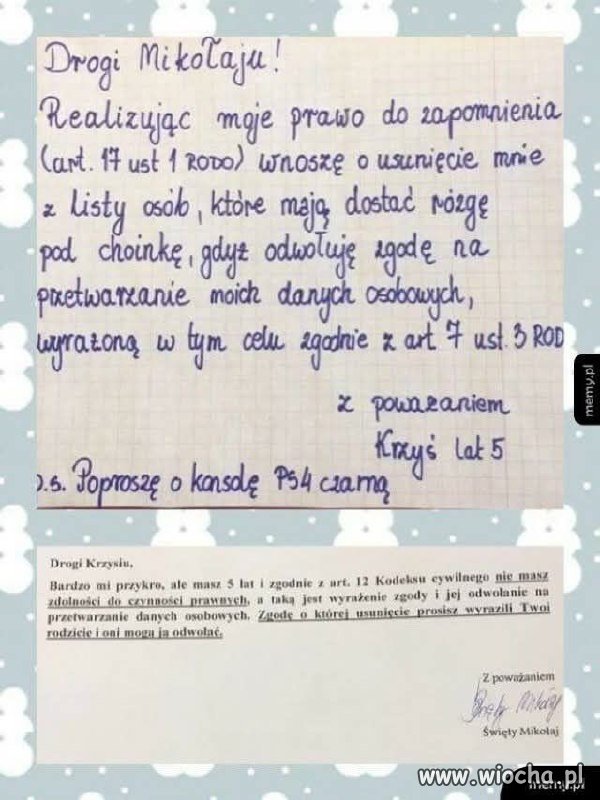 Drogi Mikołaju!
Realizując moje prawo do zapomnienia
(art. 17 ust 1 RODO) wnoszę o usunięcie mnie
z listy osób, które mają dostać rózgę
pod choinkę, gdyż odwołuję zgodę na
przetwarzanie moich danych osobowych,
wyrażoną w tym celu zgodnie z art 7 ust. 3 ROD
z poważaniem
Krzyś lat 5
p.s. Poproszę o konsolę PS4 czarną
memy.pl
Drogi Krzysiu,
Bardzo mi przykro, ale masz 5 lat i zgodnie z art. 12 Kodeksu cywilnego nie masz
zdolności do czynności prawnych, a taką jest wyrażenie zgody i jej odwołanie na
przetwarzanie danych osobowych. Zgodę o której usunięcie prosisz wyrazili Twoi
rodzicie i oni mogą ją odwołać.
Z poważaniem
Święty Mikołaj
Święty Mikołaj
www.wiocha.pl
memy.pl